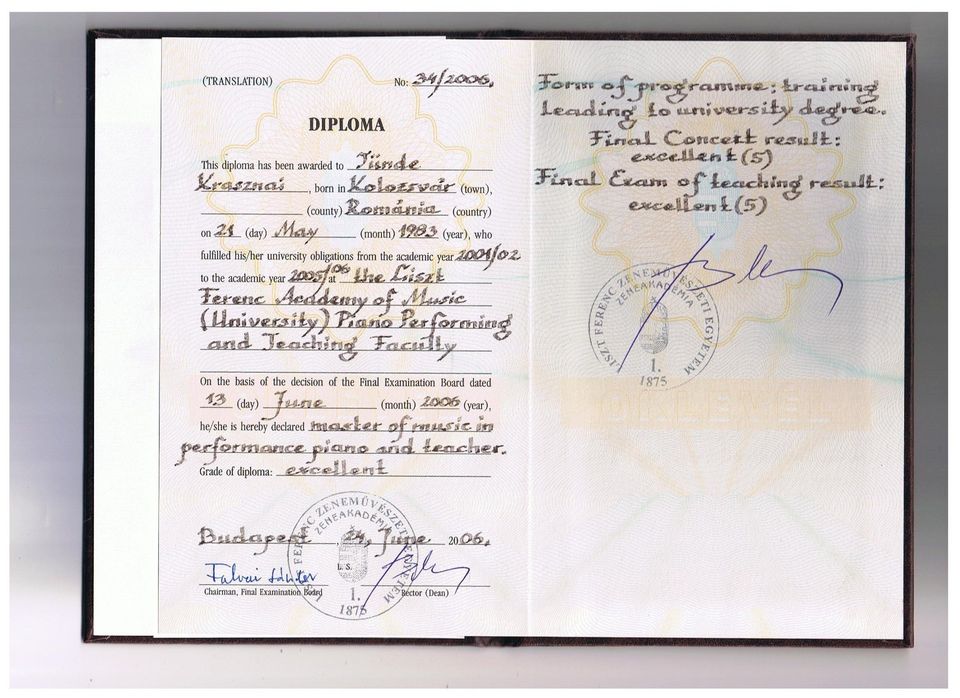 (TRANSLATION)
No: 34/2006.
DIPLOMA
This diploma has been awarded to Tünde
Krasznai, born in Kolozsvár (town),
(county) Románia (country)
on 21 (day) May (month) 1983 (year), who
fulfilled his/her university obligations from the academic year 2001/02
to the academic year 2005/06 at the Liszt
Ferenc Academy of Music
(University) Piano Performing
and Teaching Faculty
On the basis of the decision of the Final Examination Board dated
13 (day) June (month) 2006 (year),
he/she is hereby declared master of music in
performance piano and teacher.
Grade of diploma: excellent
Budapest, 24, June 2006.
Falvai Sándor
Chairman, Final Examination Board
L. S.
Rector (Dean)
LISZT FERENC ZENEMŰVÉSZETI EGYETEM
ZENEAKADÉMIA
1.
1875
Form of programme: training
leading to university degree.
Final Concett result:
excellent (5)
Final Exam of teaching result:
excellent (5)
LISZT FERENC ZENEMŰVÉSZETI EGYETEM
ZENEAKADÉMIA
1.
1875